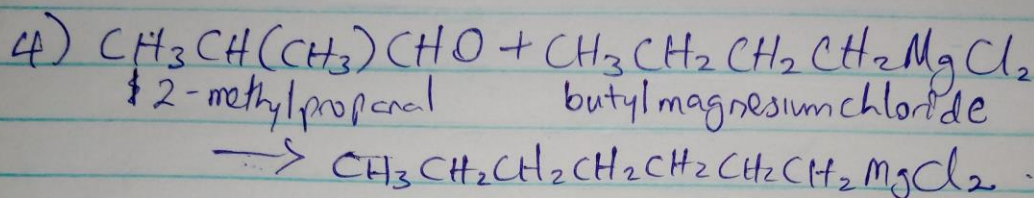 4) CH3CH(CH3)CHO + CH3CH2CH2CH2MgCl2
2-methylpropanal butylmagnesiumchloride
→ CH3CH2CH2CH2CH2CH2CH2MgCl2.